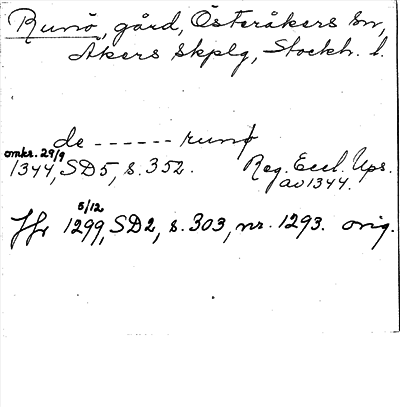 Runö, gård, Österåkers sn,
Åkers skplg, Stockh. l.
de ------ runø
omkr. 29/9
1344, SD5, s. 352. Reg. Eccl. Ups.
av 1344.
5/12
Jfr 1299, SD2, s. 303, nr. 1293. orig.